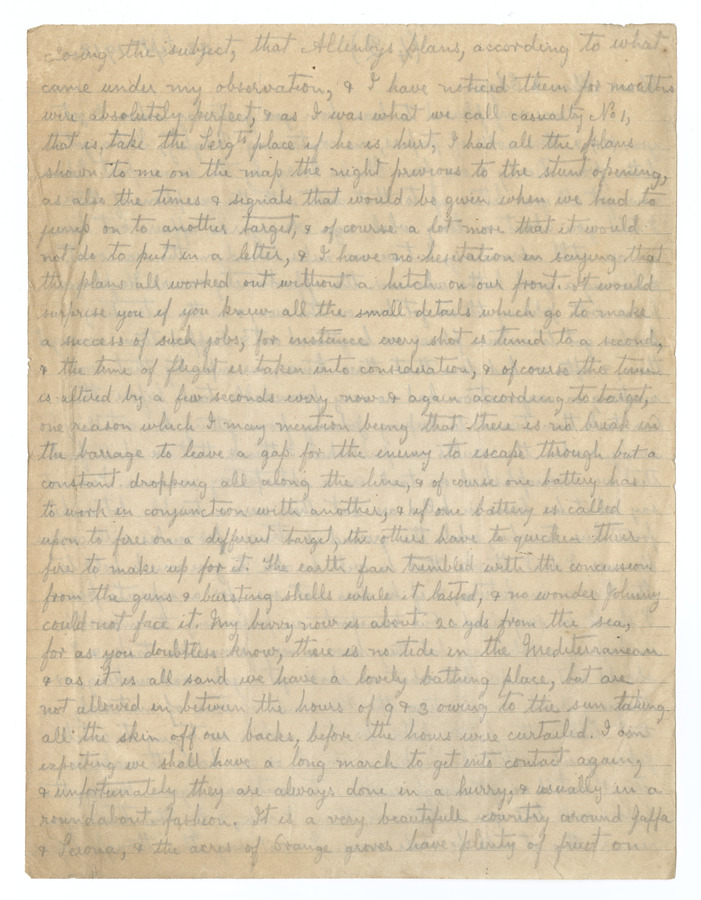 closing the subject, that Allenbys plans, according to what
came under my observation, & I have noticed them for months
were absolutely perfect, & as I was what we call casualty No 1,
that is, take the Sergts place if he is hurt, I had all the plans
shown to me on the map the night previous to the stunt opening,
as also the times & signals that would be given when we had to
jump on to another target, & of course a lot more that it would
not do to put in a letter, & I have no hesitation in saying that
the plans all worked out without a hitch on our front. It would
surprise you if you knew all the small details which go to make
a success of such jobs, for instance every shot is timed to a second,
& the time of flight is taken into consideration, & of course the time
is altered by a few seconds every now & again according to target,
one reason which I may mention being that there is no break in
the barrage to leave a gap for the enemy to escape through but a
constant dropping all along the line, & of course one battery has
to work in conjunction with another, & if one battery is called
upon to fire on a different target, the others have to quicken their
fire to make up for it. The earth fair trembled with the concussion
from the guns & bursting shells while it lasted, & no wonder Johnny
could not face it. My bivvy now is about 20 yds from the sea,
for as you doubtless know, there is no tide in the Mediterranean
& as it is all sand we have a lovely bathing place, but are
not allowed in between the hours of 9 & 3 owing to the sun taking
all the skin off our backs, before the hours were curtailed. I am
expecting we shall have a long march to get into contact again,
& unfortunately they are always done in a hurry, & usually in a
roundabout fashion. It is a very beautifull country around Jaffa
& Sarona, & the acres of Orange groves have plenty of fruit on